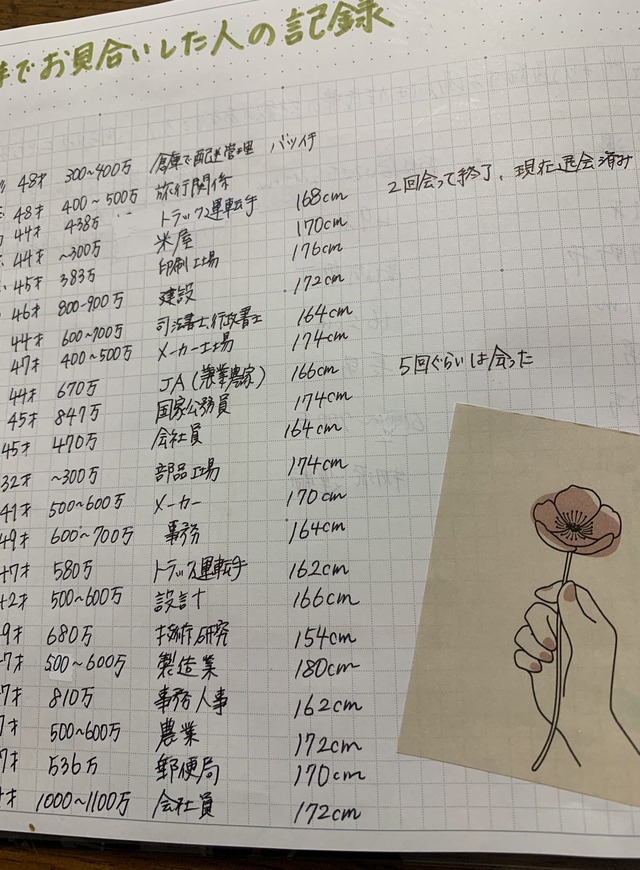 でお見合いした人の記録
48才 300~400万 倉庫で配送管理 バツイチ
48才 400~500万 旅行関係
44才 438万 トラック運転手 168cm 2回会って終了、現在退会済み
44才 ~300万 米屋 170cm
45才 383万 印刷工場 176cm
46才 800-900万 建設 172cm
44才 600~700万 司法書士、行政書士 164cm
47才 400~500万 メーカー工場 174cm
44才 670万 JA(兼業農家) 166cm 5回ぐらいは会った
45才 847万 国家公務員 174cm
45才 470万 会社員 164cm
32才 ~300万 部品工場 174cm
41才 500~600万 メーカー 170cm
49才 600~700万 事務 164cm
7才 580万 トラック運転手 162cm
2才 500~600万 設計 166cm
9才 680万 技術研究 154cm
7才 500~600万 製造業 180cm
7才 810万 事務人事 162cm
才 500~600万 農業 172cm
7才 536万 郵便局 170cm
才 1000~1100万 会社員 172cm